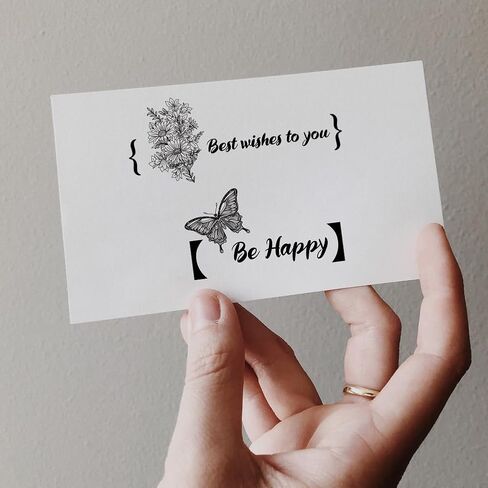 { Best wishes to you }
【 Be Happy 】